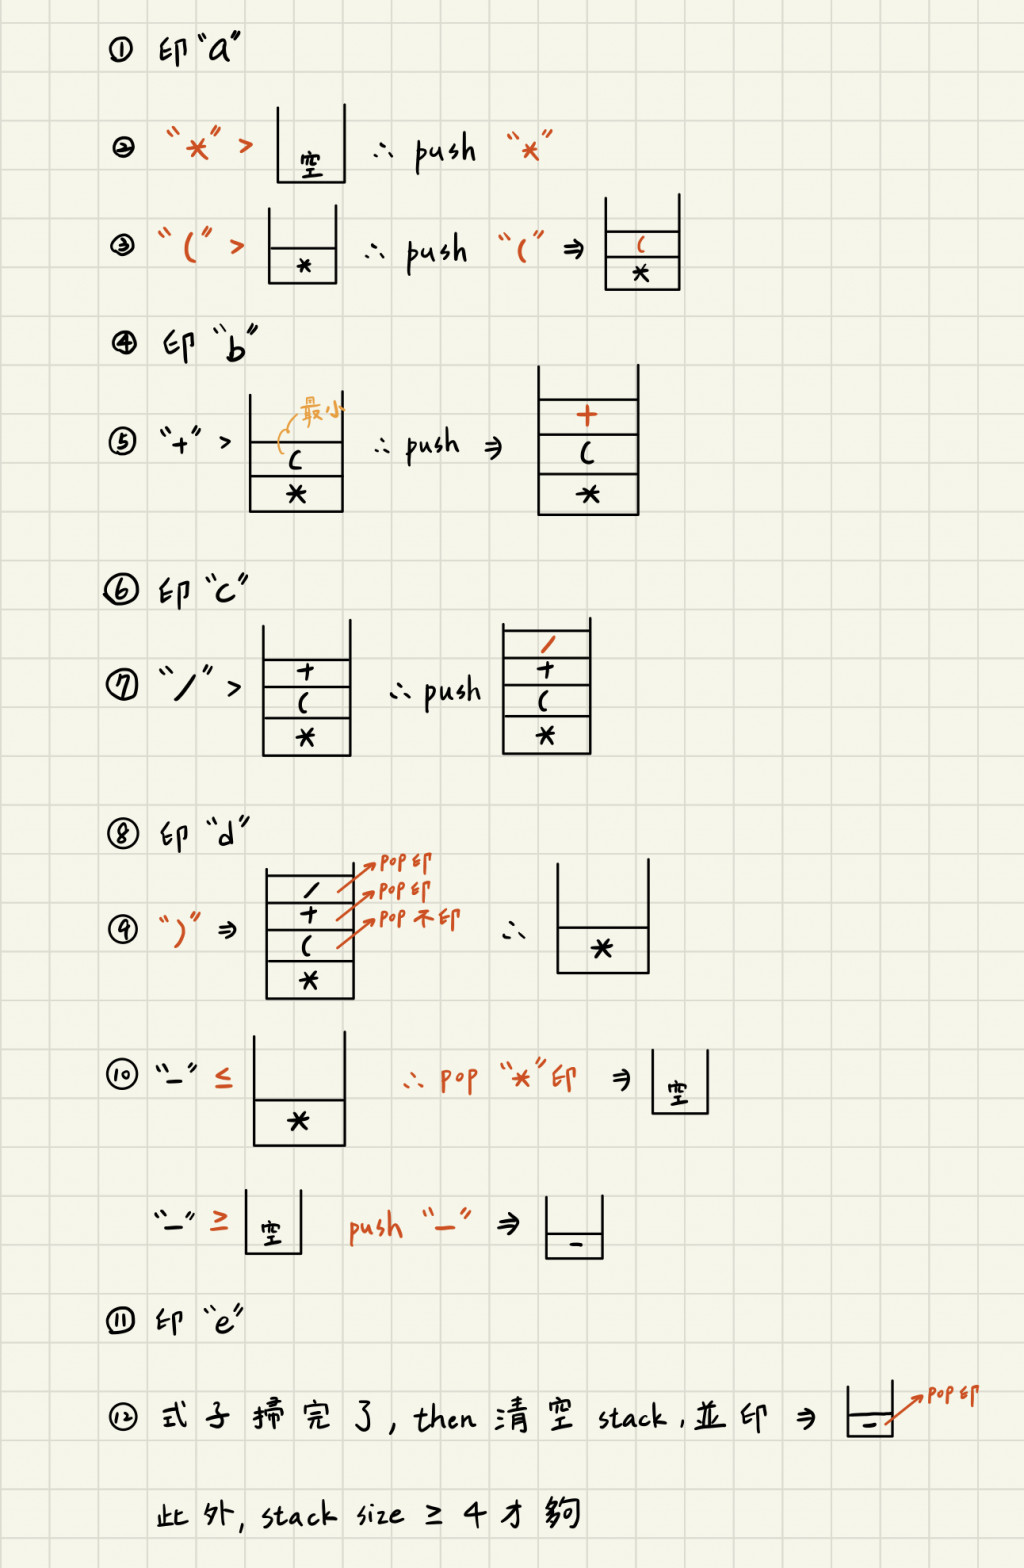 ① 印 "a"
② "*" > 空 ∴ push "*"
③ "(" > * ∴ push "(" ⇒ ( *
④ 印 "b"
最小
⑤ "+" > ( * ∴ push ⇒ + ( *
⑥ 印 "c"
⑦ "/" > + ( * ∴ push / + ( *
⑧ 印 "d"
⑨ ")" ⇒ / POP 印
+ POP 印
( POP 不印
* ∴ *
⑩ "-" ≤ * ∴ pop "*" 印 ⇒ 空
"-" ≥ 空 push "-" ⇒ -
⑪ 印 "e"
⑫ 式子掃完了, then 清空 stack, 並印 ⇒ - POP 印
此外, stack size ≥ 4 才夠